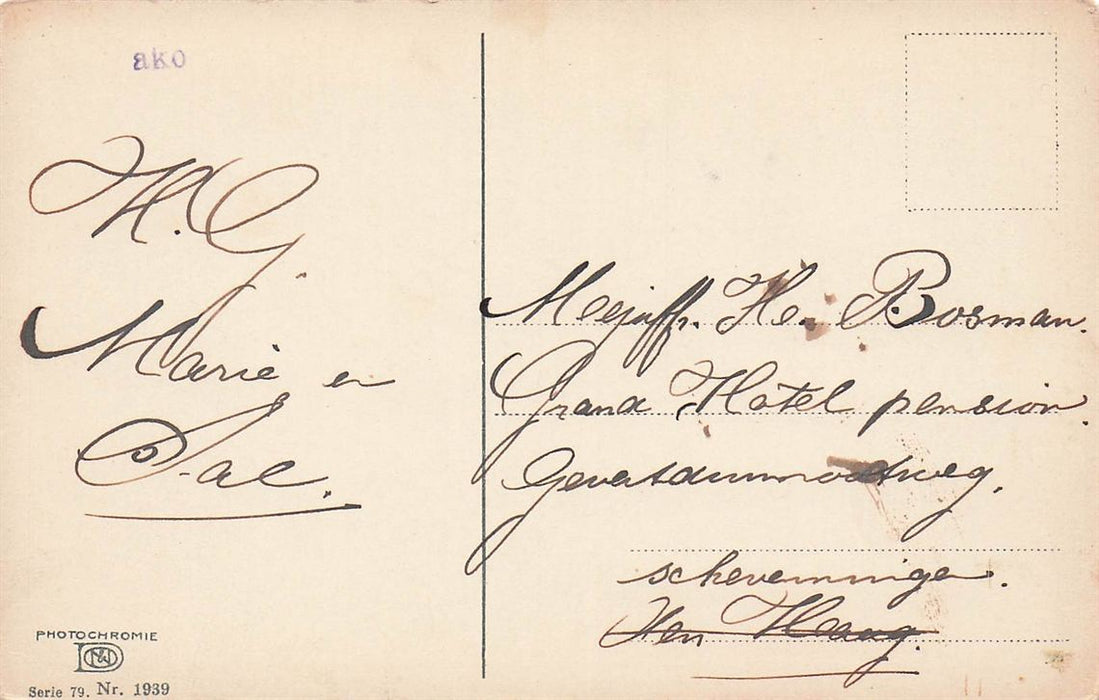 ako
H. G.
Marie en
Sal.
Mejuffr. He. Bosman.
Grand Hotel pension.
scheveningen.
Den Haag.
PHOTOCHROMIE
Serie 79. Nr. 1939